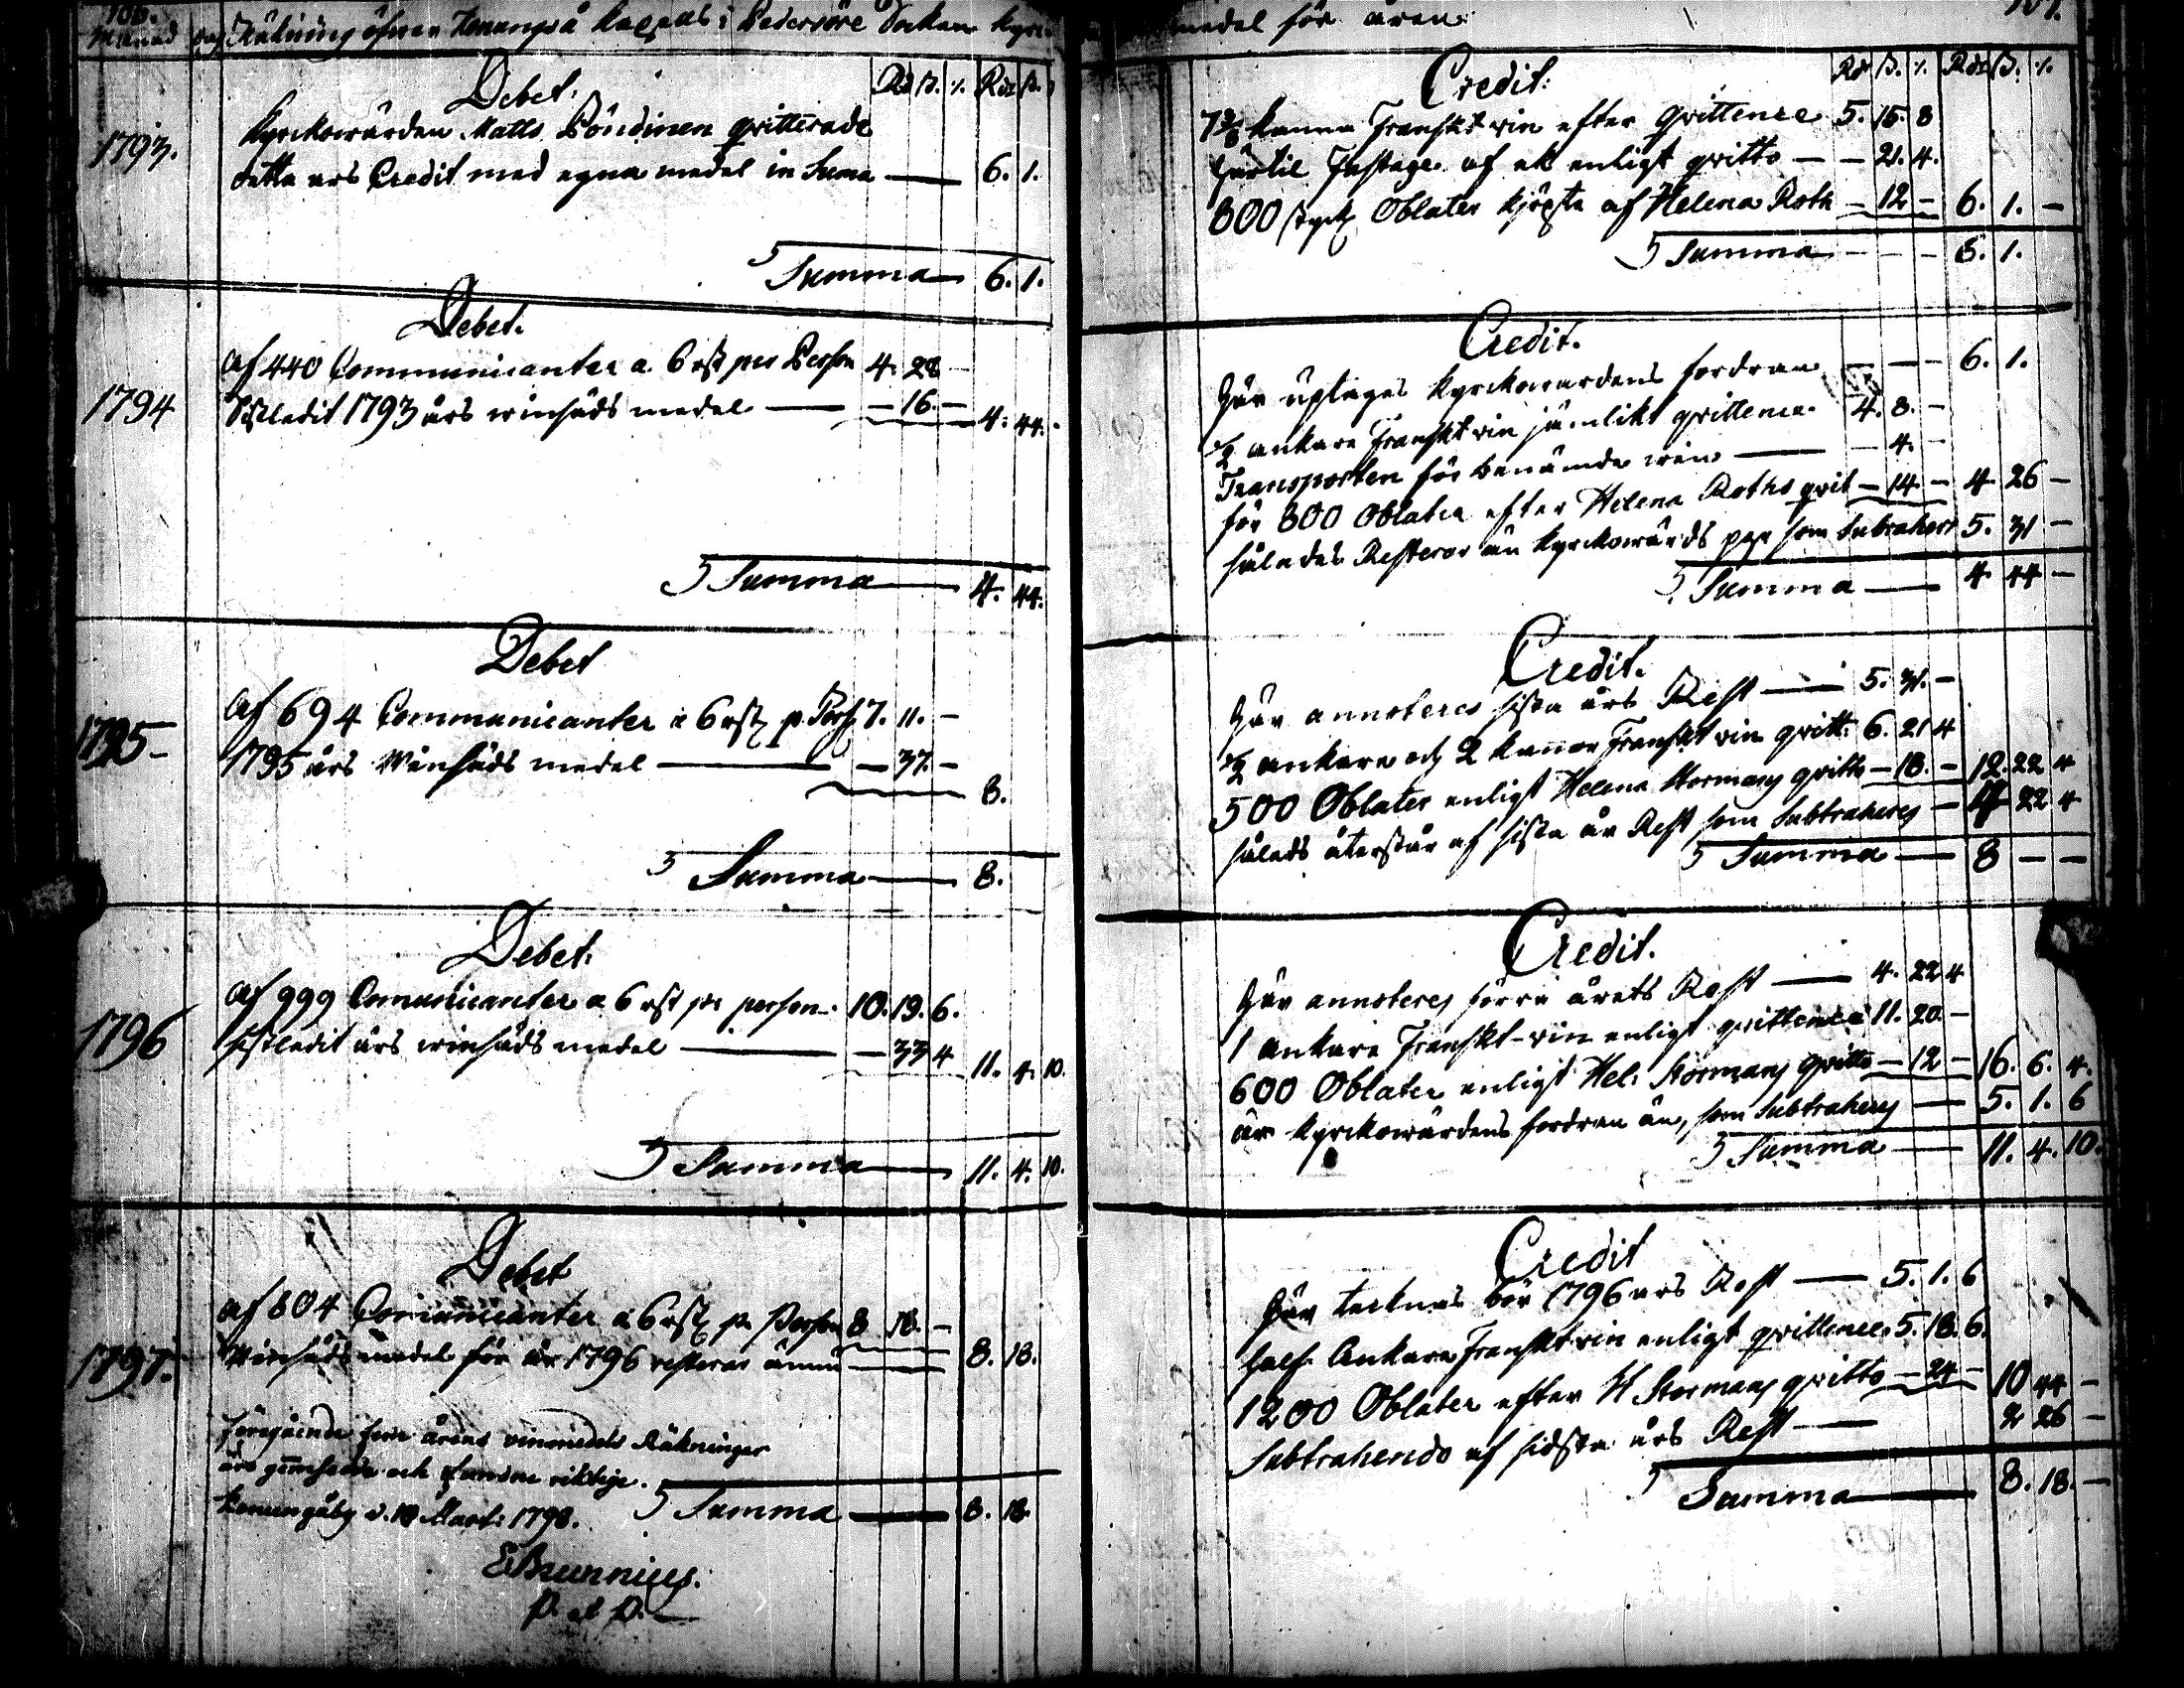 106.
Månad dag Räkning öfver Kenungså Kapells i Pedersöre Socken Kyrc
Debet. Rd ß. r. Rdr ß.
1793. Kyrckowärden Matts Pöndinen qvitterade
detta års Credit med egna medel in Suma — 6. 1.
Summa — 6. 1.
Debet.
1794 Af 440 Communicanter a 6 rst per Person 4. 28 —
Sistledit 1793 års winhäds medel — — 16. — 4. 44. -
Summa — 4. 44.
Debet
1795 — Af 694 Communicanter a 6 rst p. Pers. 7. 11. —
1795 års Winhäds medel — — 37. —
8.
Summa — 8.
Debet.
1796 Af 999 Comunicanter a 6 rst pr person. 10. 19. 6.
sistledit års winhäds medel — — 33 4 11. 4. 10.
Summa — 11. 4. 10.
Debet
1797. af 804 Comunicanter a 6 rst p. Person 8 18. —
Winhäds medel för år 1796 resterar ännu — 8. 18.
Föregående fem årens vinmedels Räkningar
äro genomsedde och funne riktige.
Kenungåby d. 18 Mart: 1798. Summa — 8. 18.
EBrunnius.
P. et P.
medel för åren 107.
Credit: Rdr ß. r. Rdr ß. r.
7 1/2 kanna Franskt vin efter qvittence 5. 15. 8
härtil Fastage af ek enligt qvitto — — 21. 4.
800 styck Oblater kjöpte af Helena Roth — 12 — 6. 1. —
Summa — — — 6. 1.
Credit.
här uptages Kyrckowärdens fordran — — — 6. 1.
1/2 ankare Franskt vin jämlikt qvittence 4. 8. —
Transporten för benämde win — — 4. —
för 800 Oblater efter Helena Roths qvit — 14 — 4 26 —
således Resterar än Kyrckowärds som Subtraher 5. 31 —
Summa — 4 44 —
Credit.
här annoteres sista års Rest — 5. 31. —
1/2 ankare och 2 kannor Franskt vin qvitt: 6. 21 4
500 Oblater enligt Helena Stormans qvitto — 18. — 12. 22 4
således återstår af sista år Rest som Subtraheres — 4 22 4
Summa — 8 — —
Credit.
här annoteres förra årets Rest — 4. 22 4
1 ankare Franskt-vin enligt qvittence 11. 20. —
600 Oblater enligt Hel: Stormans qvitto — 12 — 16. 6. 4.
är Kyrckowärdens fordran än, som Subtraheres — 5. 1. 6
Summa — 11. 4. 10.
Credit
här tecknas bör 1796 års Rest — 5. 1. 6
half Ankare Franskt vin enligt qvittence 5. 18. 6.
1200 Oblater efter H Stormans qvitto — 24 — 10 44 —
Subtrahendo af sidsta års Rest — 2 26 —
Summa — 8. 18. —